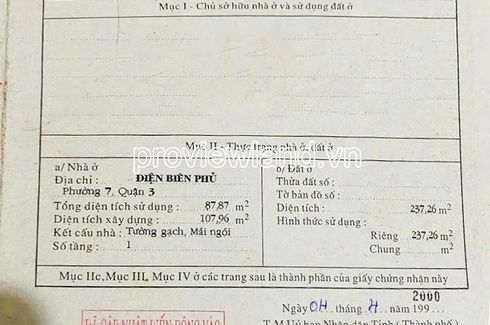 Mục I - Chủ sở hữu nhà ở và sử dụng đất ở
Mục II - Thực trạng nhà ở, đất ở
proviewland.vn
a/ Nhà ở
Địa chỉ : ĐIỆN BIÊN PHỦ
Phường 7, Quận 3
Tổng diện tích sử dụng : 87,87 m2
Diện tích xây dựng : 107,96 m2
Kết cấu nhà : Tường gạch, Mái ngói
Số tầng : 1
b/ Đất ở
Thửa đất số :
Tờ bản đồ số :
Diện tích : 237,26 m2
Hình thức sử dụng :
Riêng 237,26 m2
Chung m2
Mục IIc, Mục III, Mục IV ở các trang sau là thành phần của giấy chứng nhận này
2000
Ngày 04 tháng 4 năm 199
T.M Uỷ ban Nhân dân Tỉnh ( Thành phố )
ĐÃ CẬP NHẬT BIẾN ĐỘNG VÀO